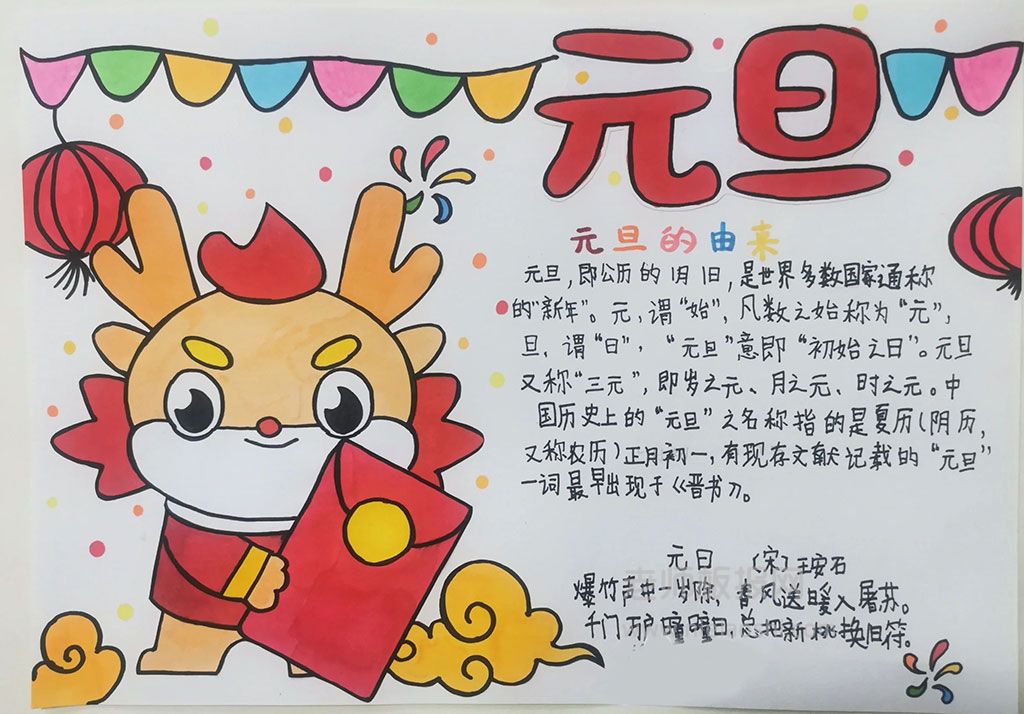 元旦
元旦的由来
元旦,即公历的1月1日,是世界多数国家通称
的"新年"。元,谓"始",凡数之始称为"元",
旦,谓"日",“元旦"意即“初始之日"。元旦
又称“三元",即岁之元、月之元、时之元。中
国历史上的“元旦"之名称指的是夏历(阴历,
又称农历)正月初一,有现存文献记载的“元旦"
一词最早出现于《晋书》。
元日 (宋)王安石
爆竹声中一岁除,春风送暖入屠苏。
千门万户曈曈日,总把新桃换旧符。